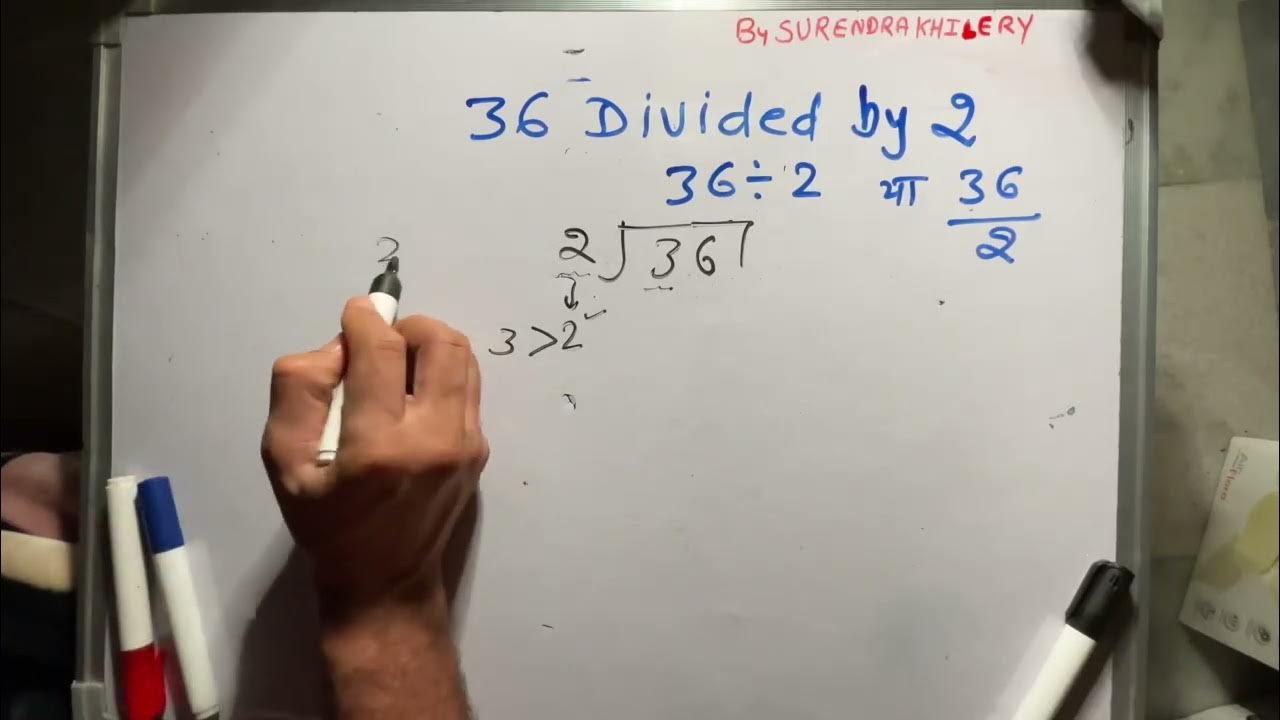 By SURENDRA KHILERY
36 Divided by 2
36÷2 या 36/2
2 36
3 > 2 ✓
2